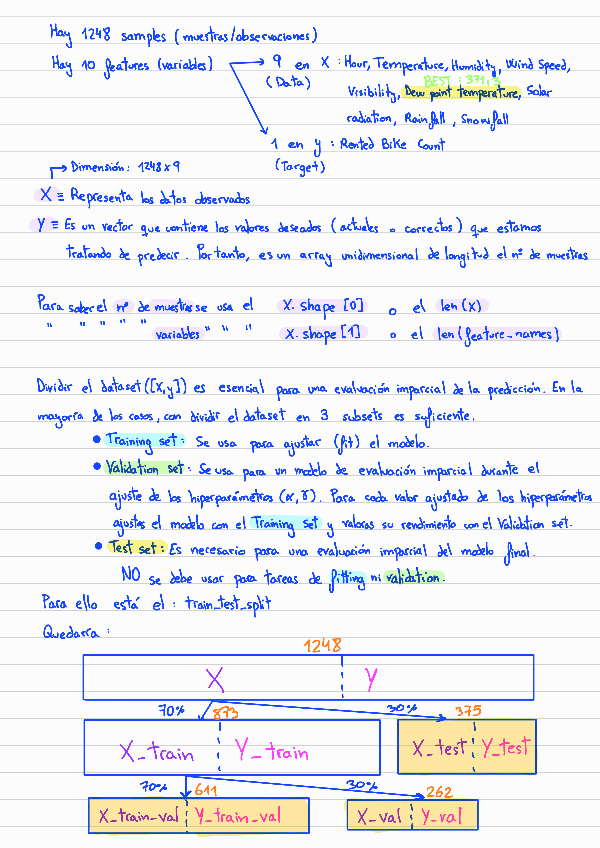 Hay 1248 samples (muestras/observaciones)
Hay 10 features (variables) → 9 en X : Hour, Temperature, Humidity, Wind Speed,
(Data)
BEST : 371,
Visibility, Dew point temperature, Solar
radiation, Rainfall, Snowfall
1 en y : Rented Bike Count
(Target)
→ Dimensión: 1248x9
X ≡ Representa los datos observados
Y ≡ Es un vector que contiene los valores deseados (actuales o correctos) que estamos
tratando de predecir. Por tanto, es un array unidimensional de longitud el nº de muestras
Para saber el nº de muestras se usa el X.shape[0] o el len(X)
" " " " " variables " " " X.shape[1] o el len(feature_names)
Dividir el dataset ([X,y]) es esencial para una evaluación imparcial de la predicción. En la
mayoría de los casos, con dividir el dataset en 3 subsets es suficiente.
• Training set: Se usa para ajustar (fit) el modelo.
• Validation set: Se usa para un modelo de evaluación imparcial durante el
ajuste de los hiperparámetros (α,γ). Para cada valor ajustado de los hiperparámetros
ajustas el modelo con el Training set y valoras su rendimiento con el Validation set.
• Test set: Es necesario para una evaluación imparcial del modelo final.
NO se debe usar para tareas de fitting ni validation.
Para ello está el : train_test_split
Quedaría :
1248
X Y
70% 873 30% 375
X_train Y_train X_test Y_test
70% 611 30% 262
X_train_val Y_train_val X_val Y_val